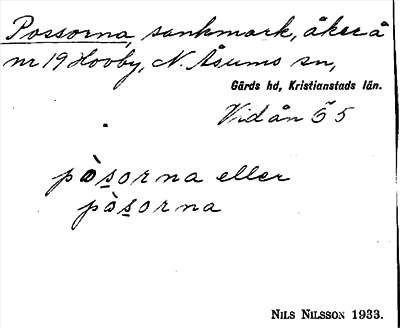 Possorna, sankmark, åker å
nr 19 Hovby, N. Åsums sn,
Gärds hd, Kristianstads län.
Vid ån Ö 5
pòsorna eller
pòsorna
NILS NILSSON 1933.